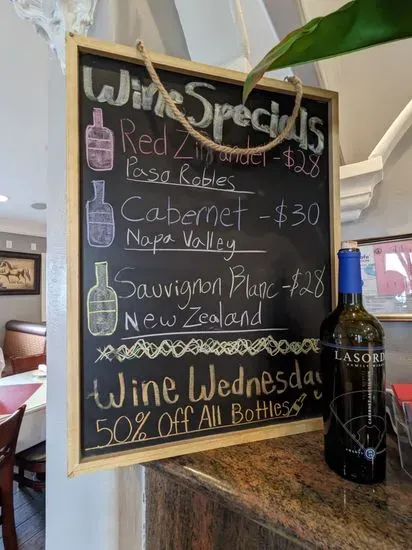 Wine Specials
Red Zinfandel - $28
Paso Robles
Cabernet - $30
Napa Valley
Sauvignon Blanc - $28
New Zealand
Wine Wednesday
50% Off All Bottles
LASORDA
FAMILY WINES